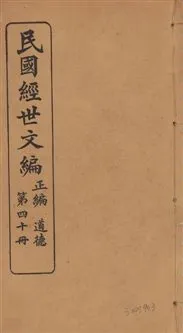 民國經世文編
正編 道德
第四十冊